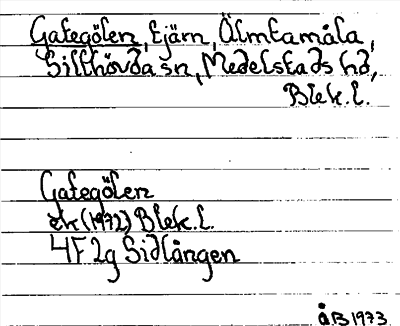 Gategölen, tjärn, Älmtamåla,
Sillhövda sn, Medelstads hd,
Blek.l.
Gategölen
ek (1972) Blek.l.
4F2g Sidlången
ÅB 1973